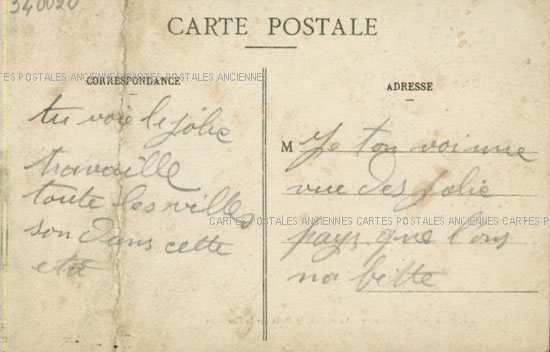 340020
CARTE POSTALE
CARTES POSTALES ANCIENNES CARTES POSTALES ANCIENNE
CORRESPONDANCE
ADRESSE
tu voie le jolie
travaille
toute les villes
son dans cette
M Je ton voi une
vue des jolie
CARTES POSTALES ANCIENNES CARTES POSTALES ANCIENNES CARTES P
pays que l'ons
na bitte